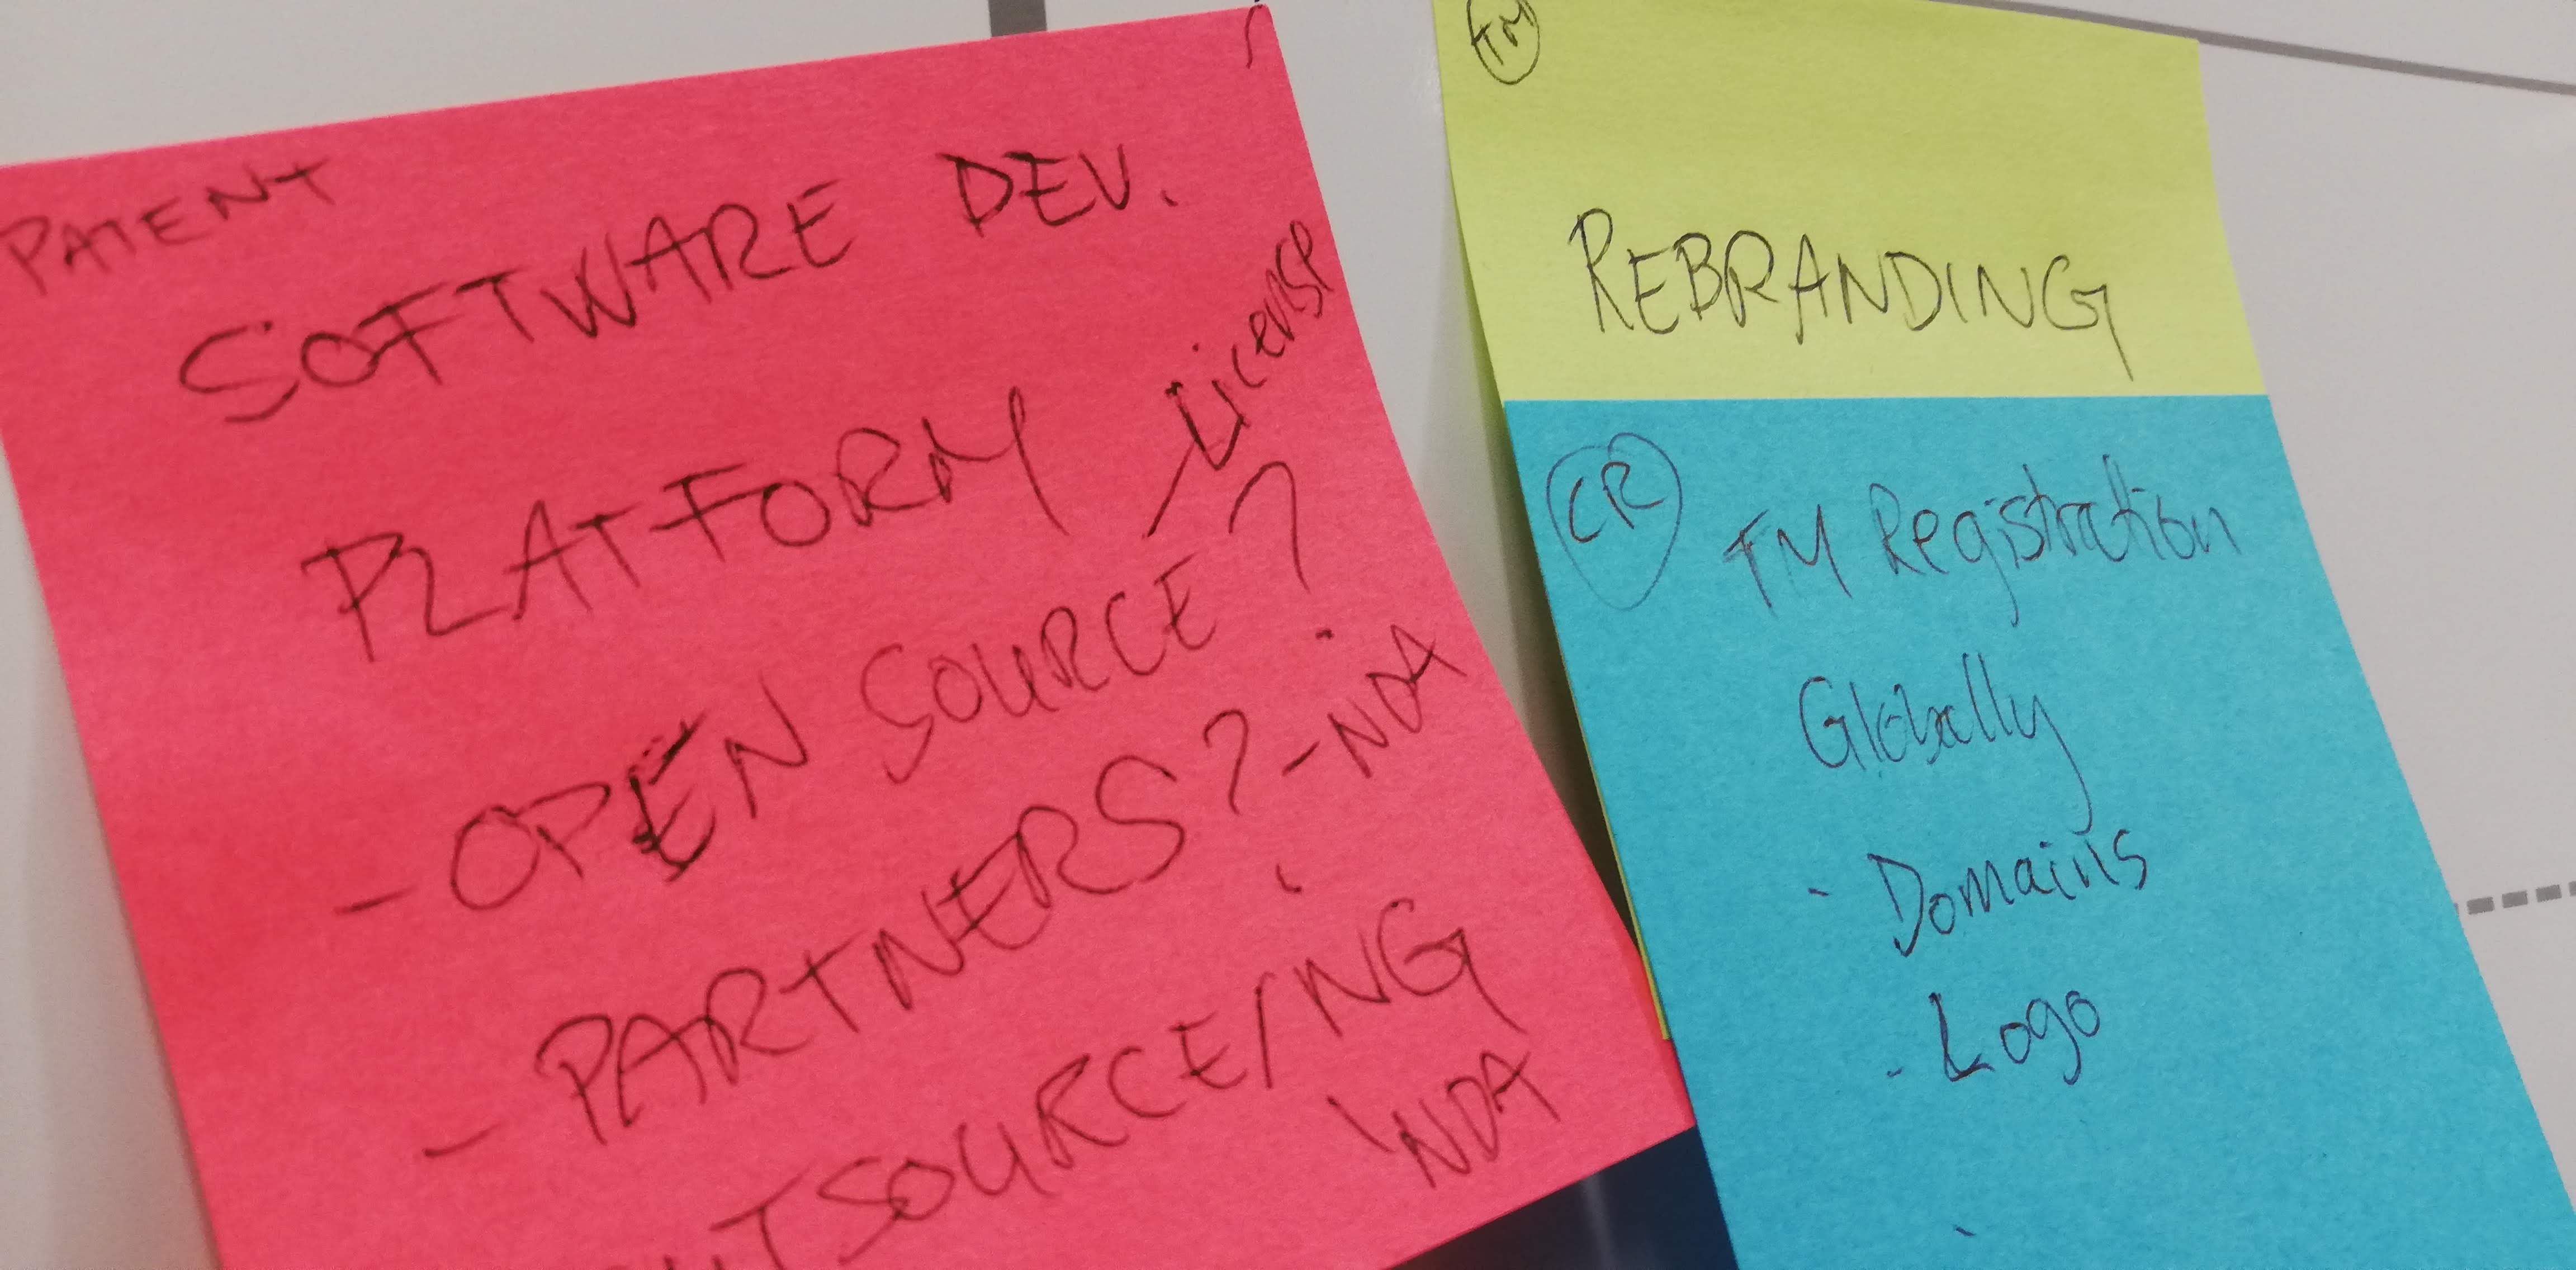 PATENT
SOFTWARE DEV.
PLATFORM
License
- OPEN SOURCE?
- PARTNERS? - NDA
OUTSOURCE/NG
NDA
TM
REBRANDING
CR
TM Registration
Globally
- Domains
- Logo